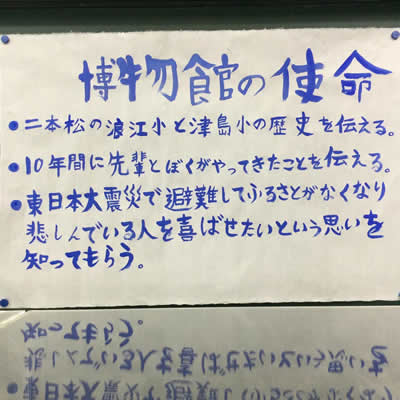 博物館の使命
●二本松の浪江小と津島小の歴史を伝える。
●10年間に先輩とぼくがやってきたことを伝える。
●東日本大震災で避難してふるさとがなくなり
悲しんでいる人を喜ばせたいという思いを
知ってもらう。